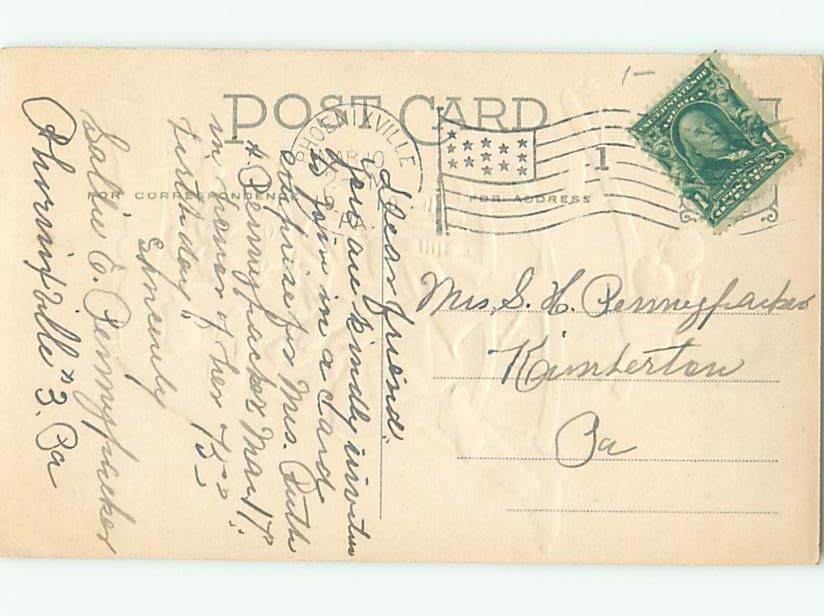 POST CARD
PHOENIXVILLE
MAR 10
PA
1
FOR CORRESPONDENCE
FOR ADDRESS
1
Dear friend.
you are kindly invited
to join in a Card
surprise for Mrs. Ruth
A. Pennypacker Mar 17th
in honor of her 75th
birthday.
Sincerely
Sallie E. Pennypacker
Phoenixville # 3. Pa
Mrs. S. H. Pennypacker
Kimberton
Pa